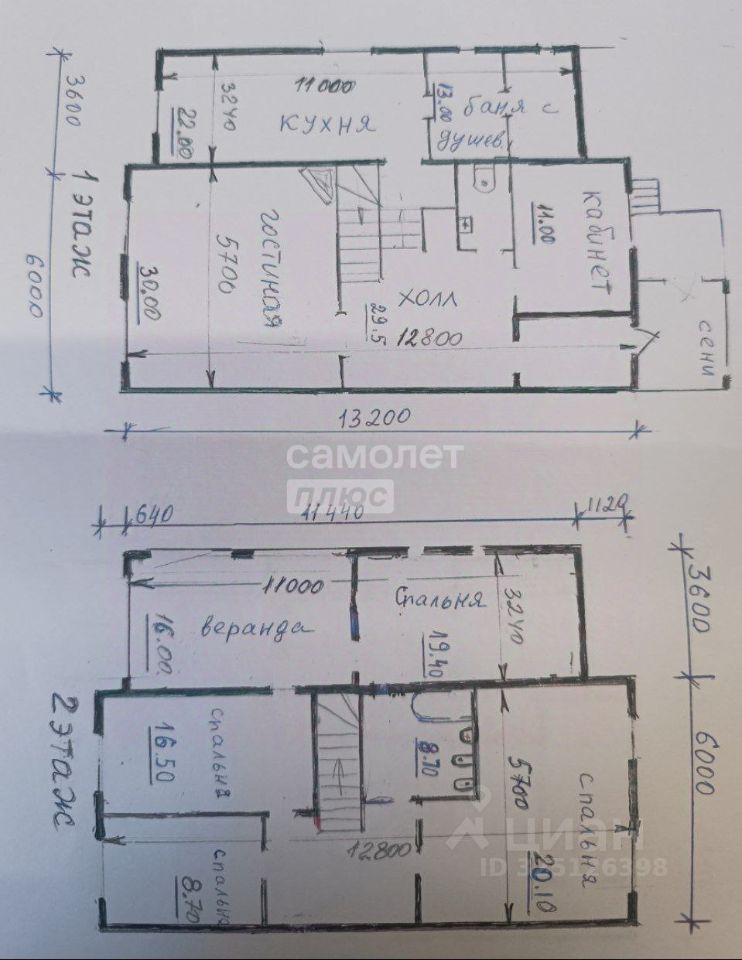 3600
3240
11000
22.00
КУХНЯ
13.00
баня с
душев.
1 этаж
6000
30.00
5700
гостиная
холл
29.5
12800
11.00
кабинет
сени
13200
самолет
плюс
640
11440
1120
11000
веранда
16.00
Спальня
19.40
3240
3600
2 этаж
спальня
16.50
8.70
5700
спальня
6000
спальня
8.70
12800
20.10
циан